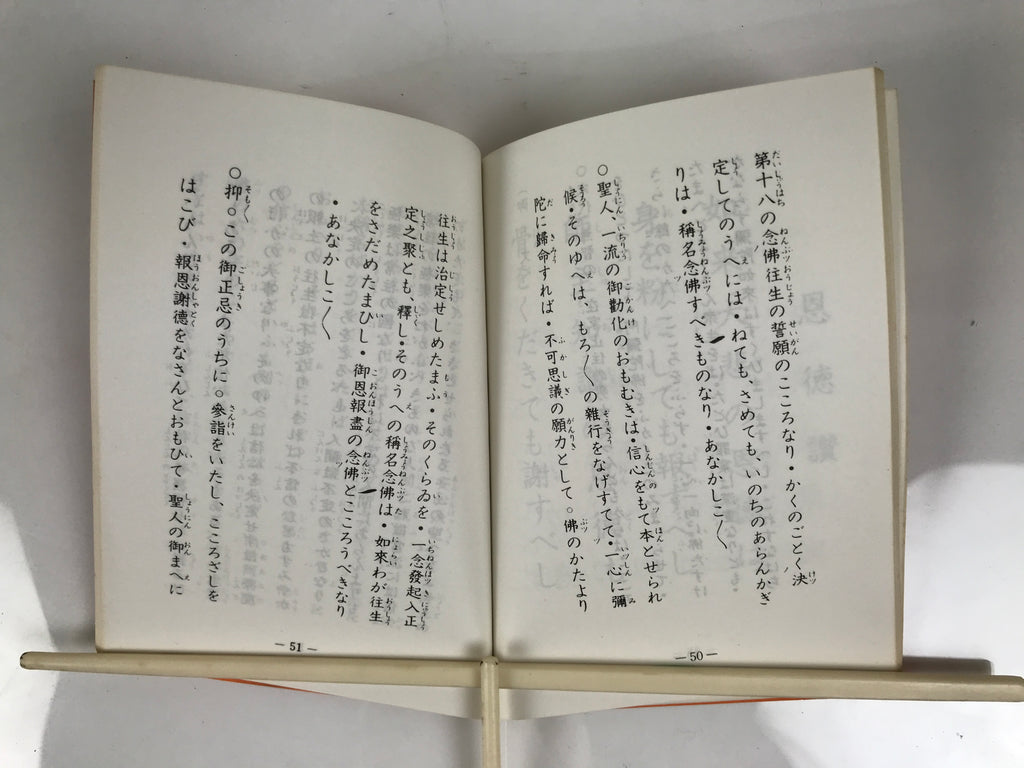 第十八の念佛往生の誓願のこころなり・かくのごとく決
定してのうへには・ねても、さめても、いのちのあらんかぎ
りは・稱名念佛すべきものなり・あなかしこ〱
○聖人、一流の御勸化のおもむきは・信心をもて本とせられ
候・そのゆへは、もろ〱の雜行をなげすてて・一心に彌
陀に歸命すれば・不可思議の願力として○佛のかたより
—50—
往生は治定せしめたまふ・そのくらゐを・一念發起入正
定之聚とも、釋し・そのうへの稱名念佛は・如來わが往生
をさだめたまひし・御恩報盡の念佛とこころうべきなり
・あなかしこ〱
○抑○この御正忌のうちに○參詣をいたし、こころざしを
はこび・報恩謝德をなさんとおもひて・聖人の御まへに
—51—